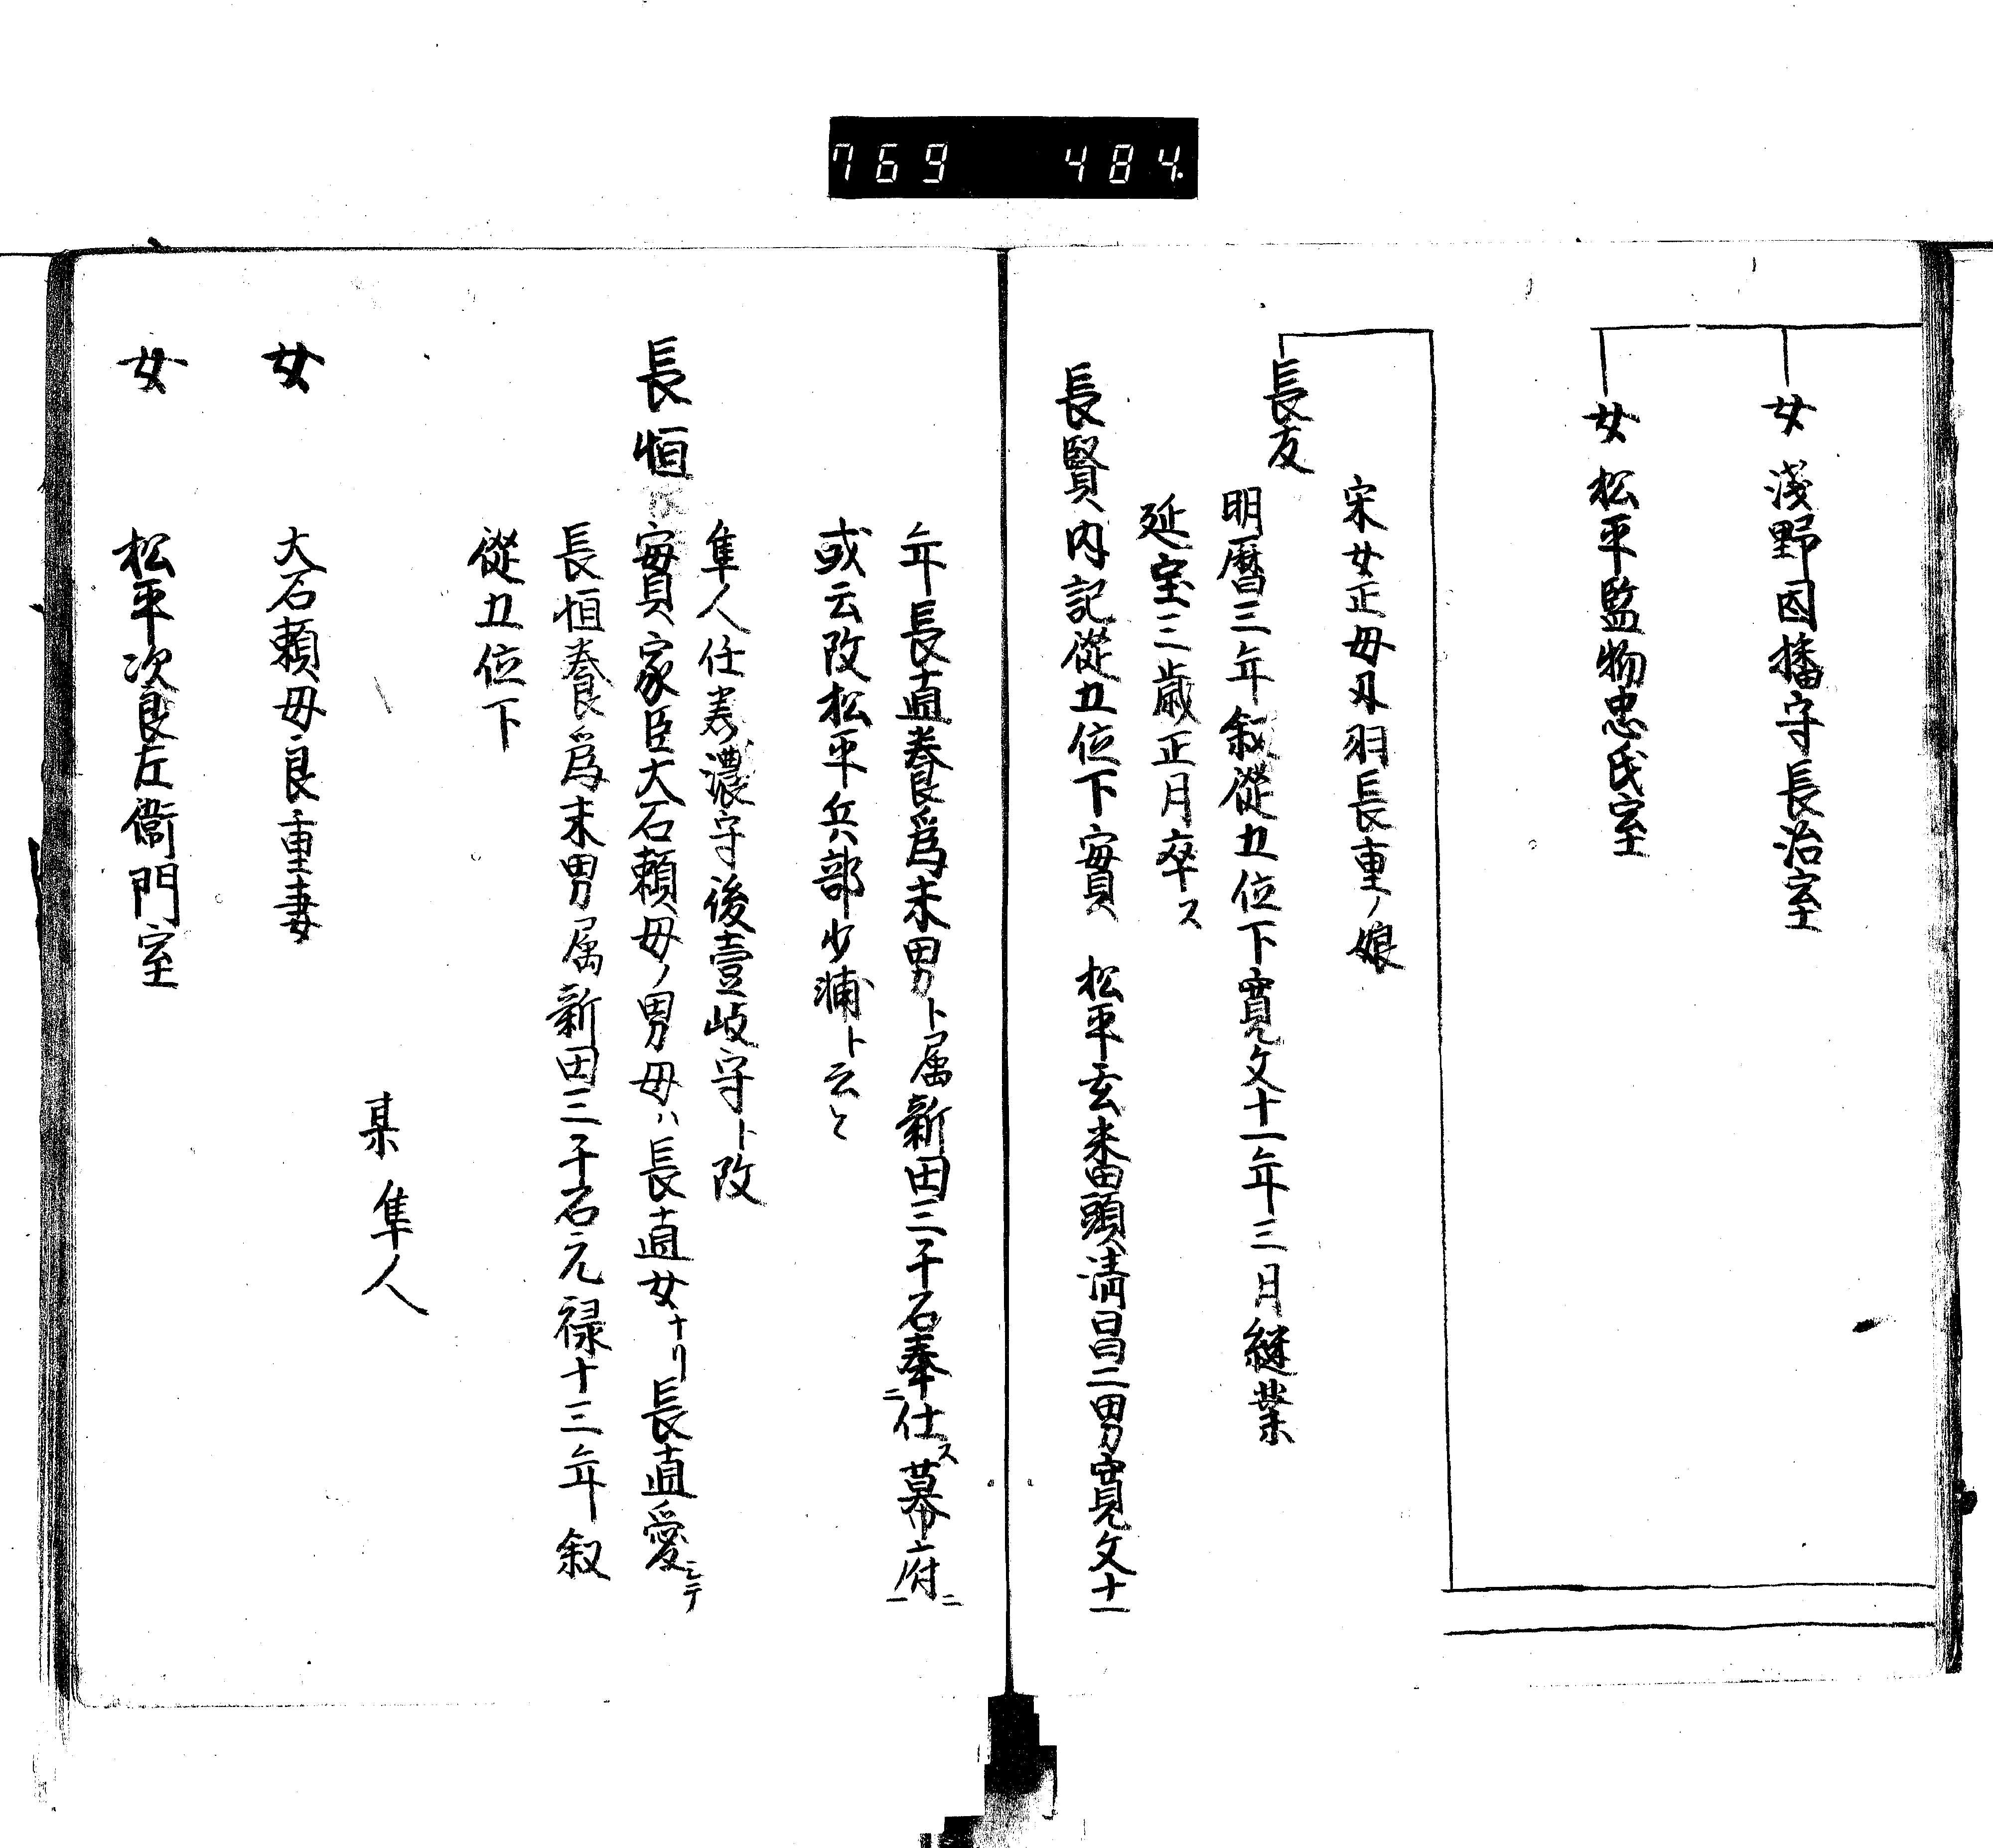 769 484.
女 淺野因播守長治室
女 松平監物忠氏室
宋女正母丹羽長重ノ娘
長友
明曆三年叙從五位下寛文十一年三月継業
延宝三歳正月卒ス
長賢 内記從五位下實 松平玄番頭清昌二男寛文十一
年長直養爲末男ト属新田三千石奉ニ仕ス幕府一ニ
或云改松平兵部少浦ト云々
隼人任美濃守後壹岐守ト改
長恒 實家臣大石頼母ノ男母ハ長直女ナリ長直愛シテ
長恒養爲末男属新田三千石元禄十三年叙
從五位下
某 隼人
女 大石頼母良重妻
女 松平次良左衛門室